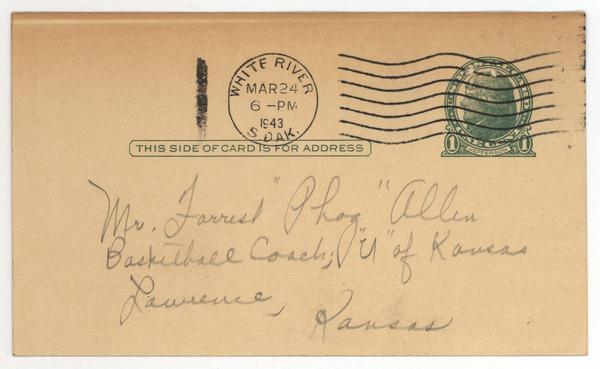 WHITE RIVER
MAR 24
6 -PM
1943
S. DAK.
THIS SIDE OF CARD IS FOR ADDRESS
1 JEFFERSON 1
Mr. Forrest "Phog" Allen
Basketball Coach, "U" of Kansas
Lawrence,
Kansas